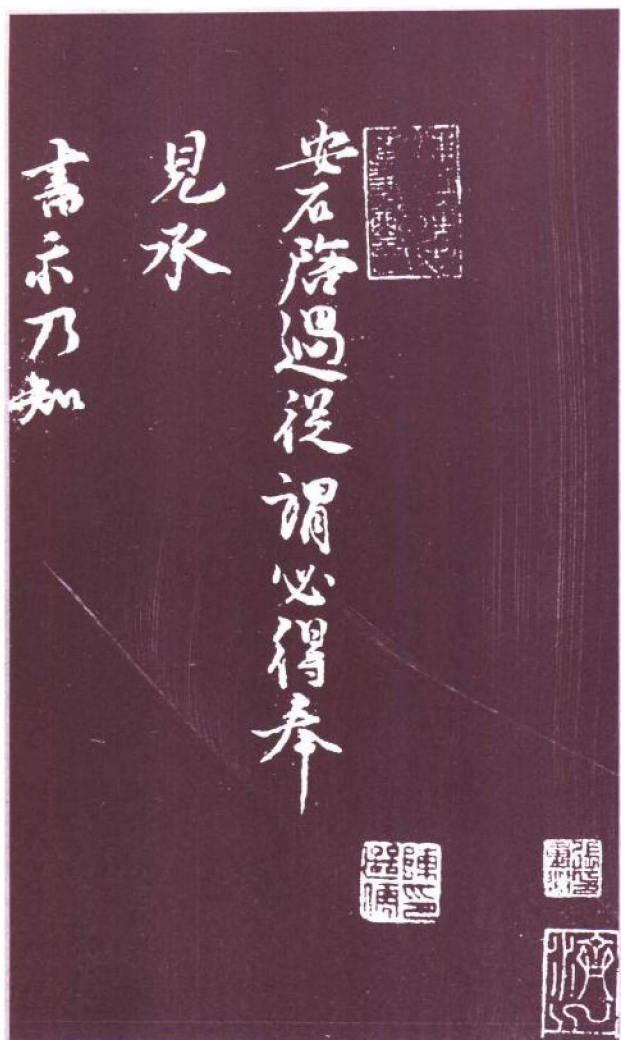 安石啓過從謂必得奉
見承
書示乃知